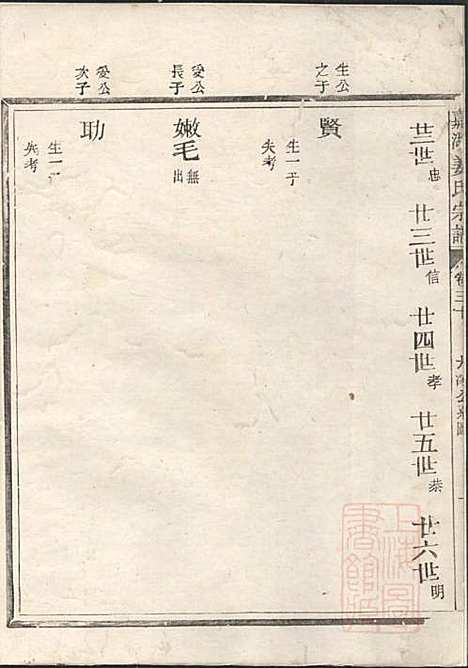 嘉湖姜氏宗譜 卷三十
廿二世忠 廿三世信 廿四世孝 廿五世恭 廿六世明
生公之子
賢
生一子
失考
愛公長子
嫩毛
無出
愛公次子
助
生一子
失考
上海圖書館